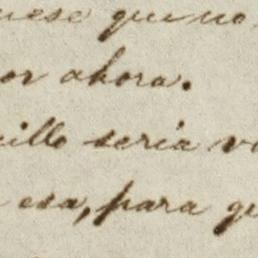 uese que no
or ahora.
illo seria v
esa, para qu